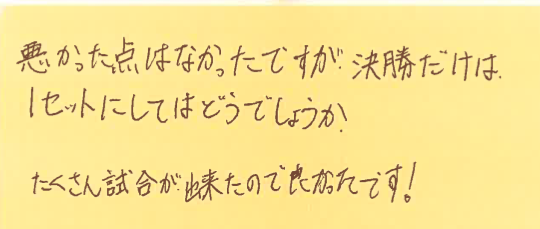 悪かった点はなかったですが、決勝だけは、
1セットにしてはどうでしょうか、
たくさん試合が出来たので良かったです!